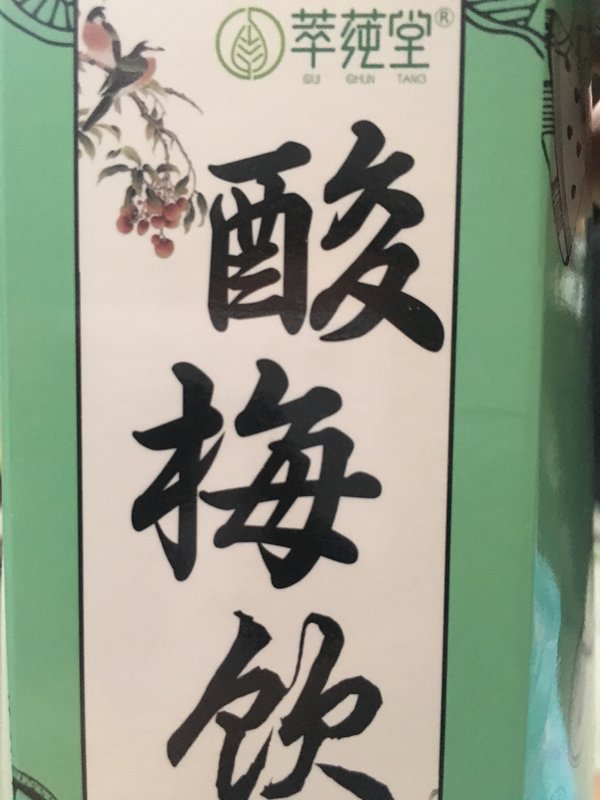 萃莼堂®
CUI CHUN TANG
酸
梅
饮